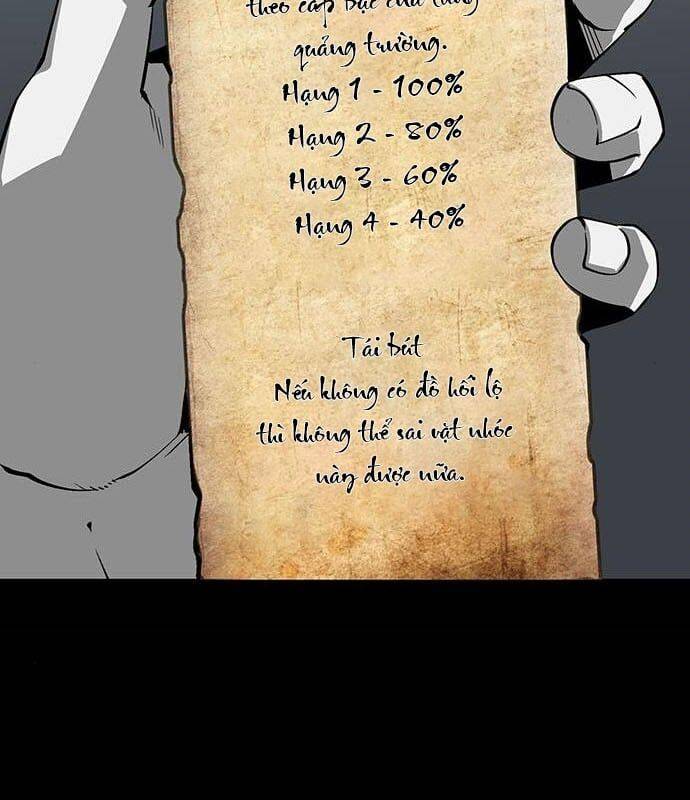 theo cấp bậc của từng
quảng trường.
Hạng 1 - 100%
Hạng 2 - 80%
Hạng 3 - 60%
Hạng 4 - 40%
Tái bút
Nếu không có đồ hối lộ
thì không thể sai vặt nhóc
này được nữa.